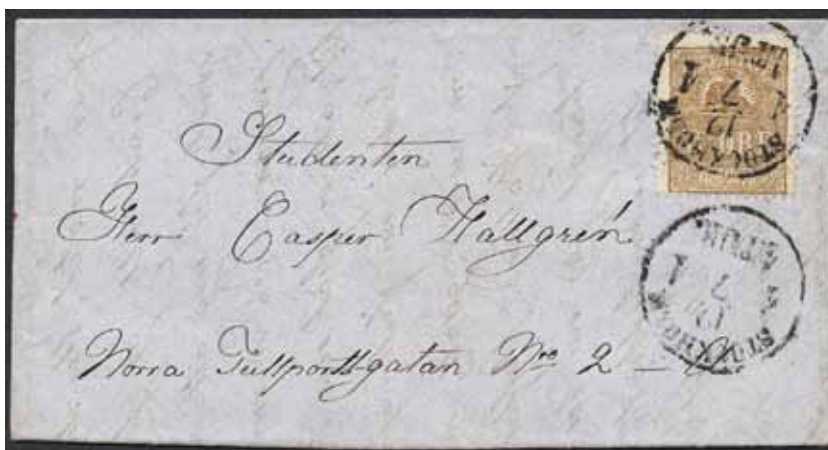 Studenten
Herr Casper Hallgrén.
Norra Tullportsgatan Nro 2 –
ÖRE
STOCKHOLM
12
7
STOCKHOLM
12
7